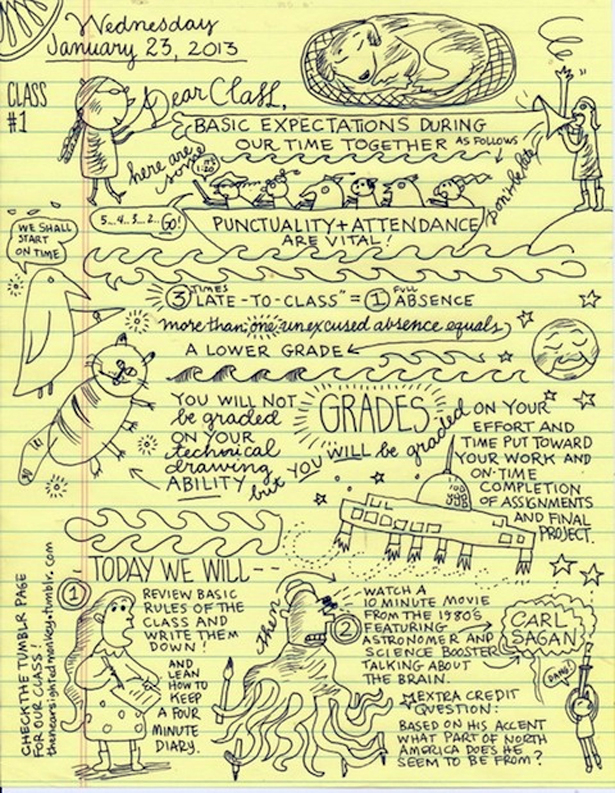 Wednesday
January 23, 2013
CLASS
#1
Dear Class,
here are
some
BASIC EXPECTATIONS DURING
OUR TIME TOGETHER AS FOLLOWS
don't be late
IT'S
1:20
5...4...3...2... GO!
PUNCTUALITY + ATTENDANCE
ARE VITAL!
WE SHALL
START
ON TIME
3 TIMES "LATE-TO-CLASS" = 1 FULL ABSENCE
more than one unexcused absence equals
A LOWER GRADE
YOU WILL NOT
be graded
ON YOUR
technical
drawing
ABILITY
but YOU WILL be graded ON YOUR
GRADES
EFFORT AND
TIME PUT TOWARD
YOUR WORK AND
ON-TIME
COMPLETION
OF ASSIGNMENTS
AND FINAL
PROJECT.
TODAY WE WILL--
1
REVIEW BASIC
RULES OF THE
CLASS AND
WRITE THEM
DOWN!
AND
LEAN
HOW TO
KEEP
A FOUR
MINUTE
DIARY.
then
2
WATCH A
10 MINUTE MOVIE
FROM THE 1980'S
FEATURING
ASTRONOMER AND
SCIENCE BOOSTER
TALKING ABOUT
THE BRAIN.
CARL
SAGAN
DANG!
EXTRA CREDIT
QUESTION:
BASED ON HIS ACCENT
WHAT PART OF NORTH
AMERICA DOES HE
SEEM TO BE FROM?
CHECK THE TUMBLR PAGE
FOR OUR CLASS!
thenearsightedmonkey.tumblr.com